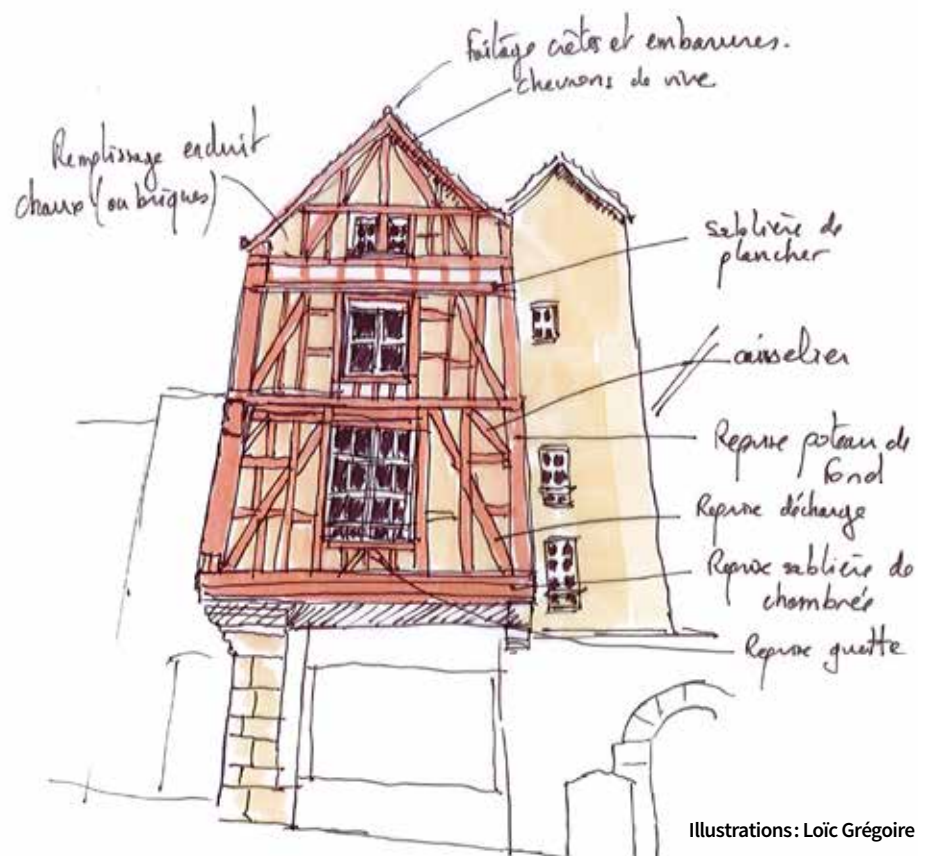 Faîtage crêtes et embarrures.
chevrons de rive
Remplissage enduit
chaux (ou briques)
sablière de
plancher
aisselier
Reprise poteau de
fond
Reprise décharge
Reprise sablière de
chambrée
Reprise guette
Illustrations : Loïc Grégoire